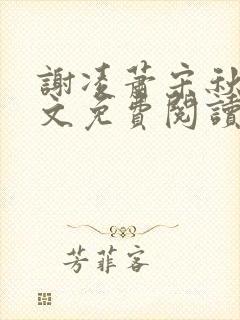 謝凌蕭宋秋
文免費閱讀
芳菲客